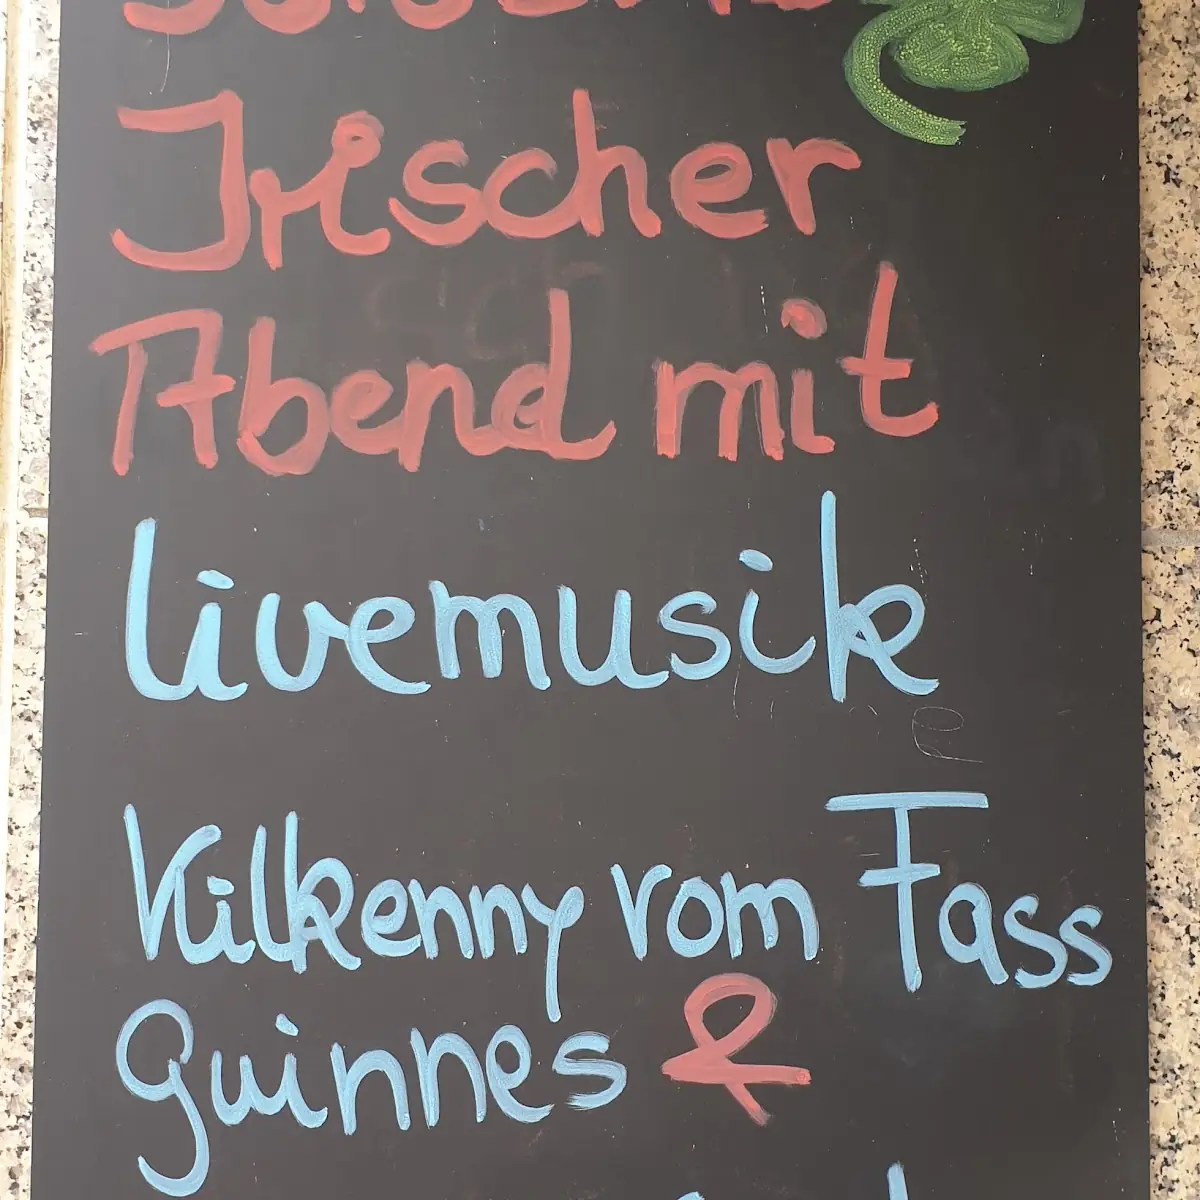 Irischer
Abend mit
livemusik
Kilkenny vom Fass
Guinnes &